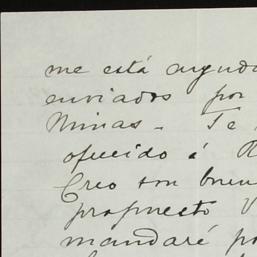 me está ayuda
enviados por
Minas - Te
ofrecido á
Creo son buen
propuesto V
mandaré po